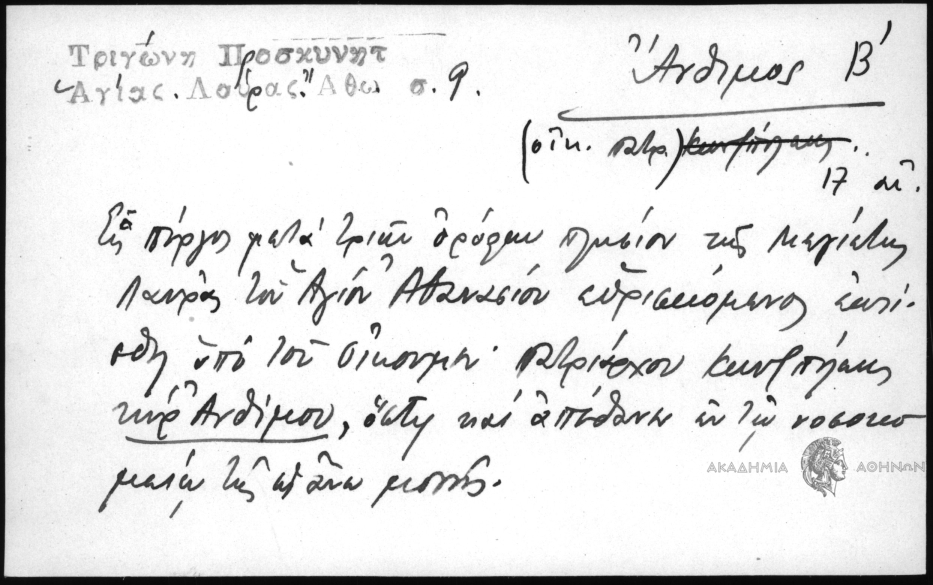 Τριγώνη Προσκυνητ
Ἁγίας. Λαύρας. Ἄθω σ. 9.
Ἄνθιμος Β΄
(οἰκ. πτρ.) Κωνζπόλεως.
17 αἰ.
Εἷς πύργος μετὰ τριῶν ὀρόφων πλησίον τῆς Μεγίστης
Λαύρας τοῦ Ἁγίου Ἀθανασίου εὑρισκόμενος ἐκτί-
σθη ὑπὸ τοῦ Οἰκουμεν. πατριάρχου Κωνζπόλεως
κύρ Ἀνθίμου, ὅστις καὶ ἀπέθανεν ἐν τῷ νοσοκο
μείῳ τῆς ἄνω μονῆς.
ΑΚΑΔΗΜΙΑ ΑΘΗΝΩΝ